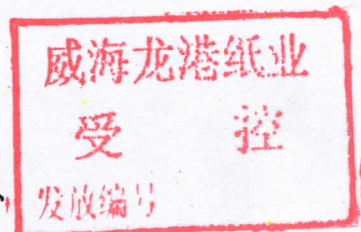 威海龙港纸业
受 控
发放编号